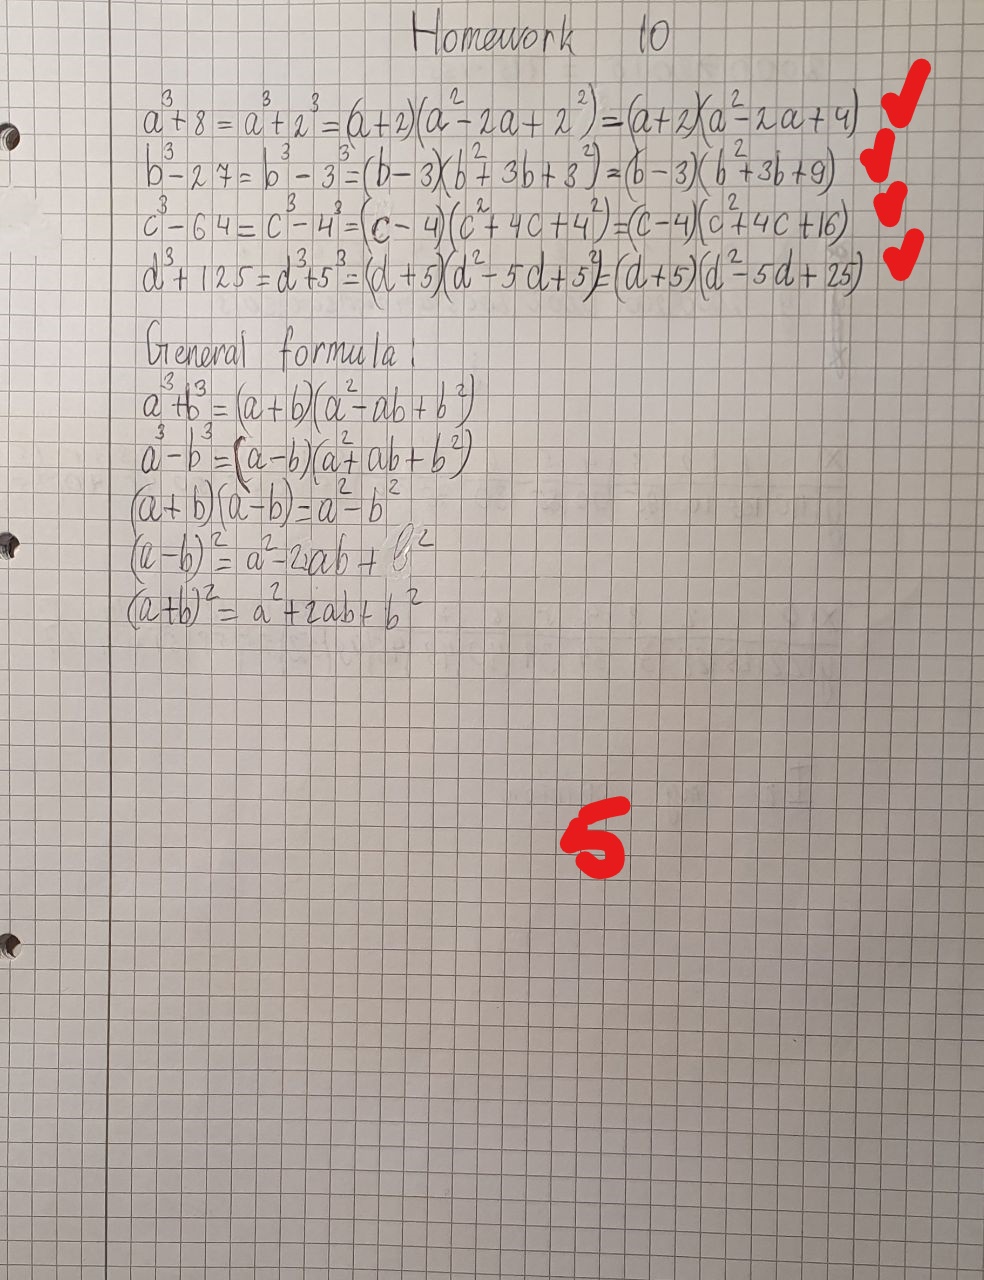 Homework 10
a³+8=a³+2³=(a+2)(a²-2a+2²)=(a+2)(a²-2a+4)
b³-27=b³-3³=(b-3)(b²+3b+3²)=(b-3)(b²+3b+9)
c³-64=c³-4³=(c-4)(c²+4c+4²)=(c-4)(c²+4c+16)
d³+125=d³+5³=(d+5)(d²-5d+5²)=(d+5)(d²-5d+25)
General formula:
a³+b³=(a+b)(a²-ab+b²)
a³-b³=(a-b)(a²+ab+b²)
(a+b)(a-b)=a²-b²
(a-b)²=a²-2ab+b²
(a+b)²=a²+2ab+b²
5